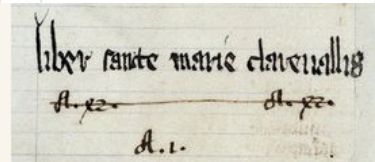 liber sancte marie clareuallis
A. xx. A. xx.
A. i.